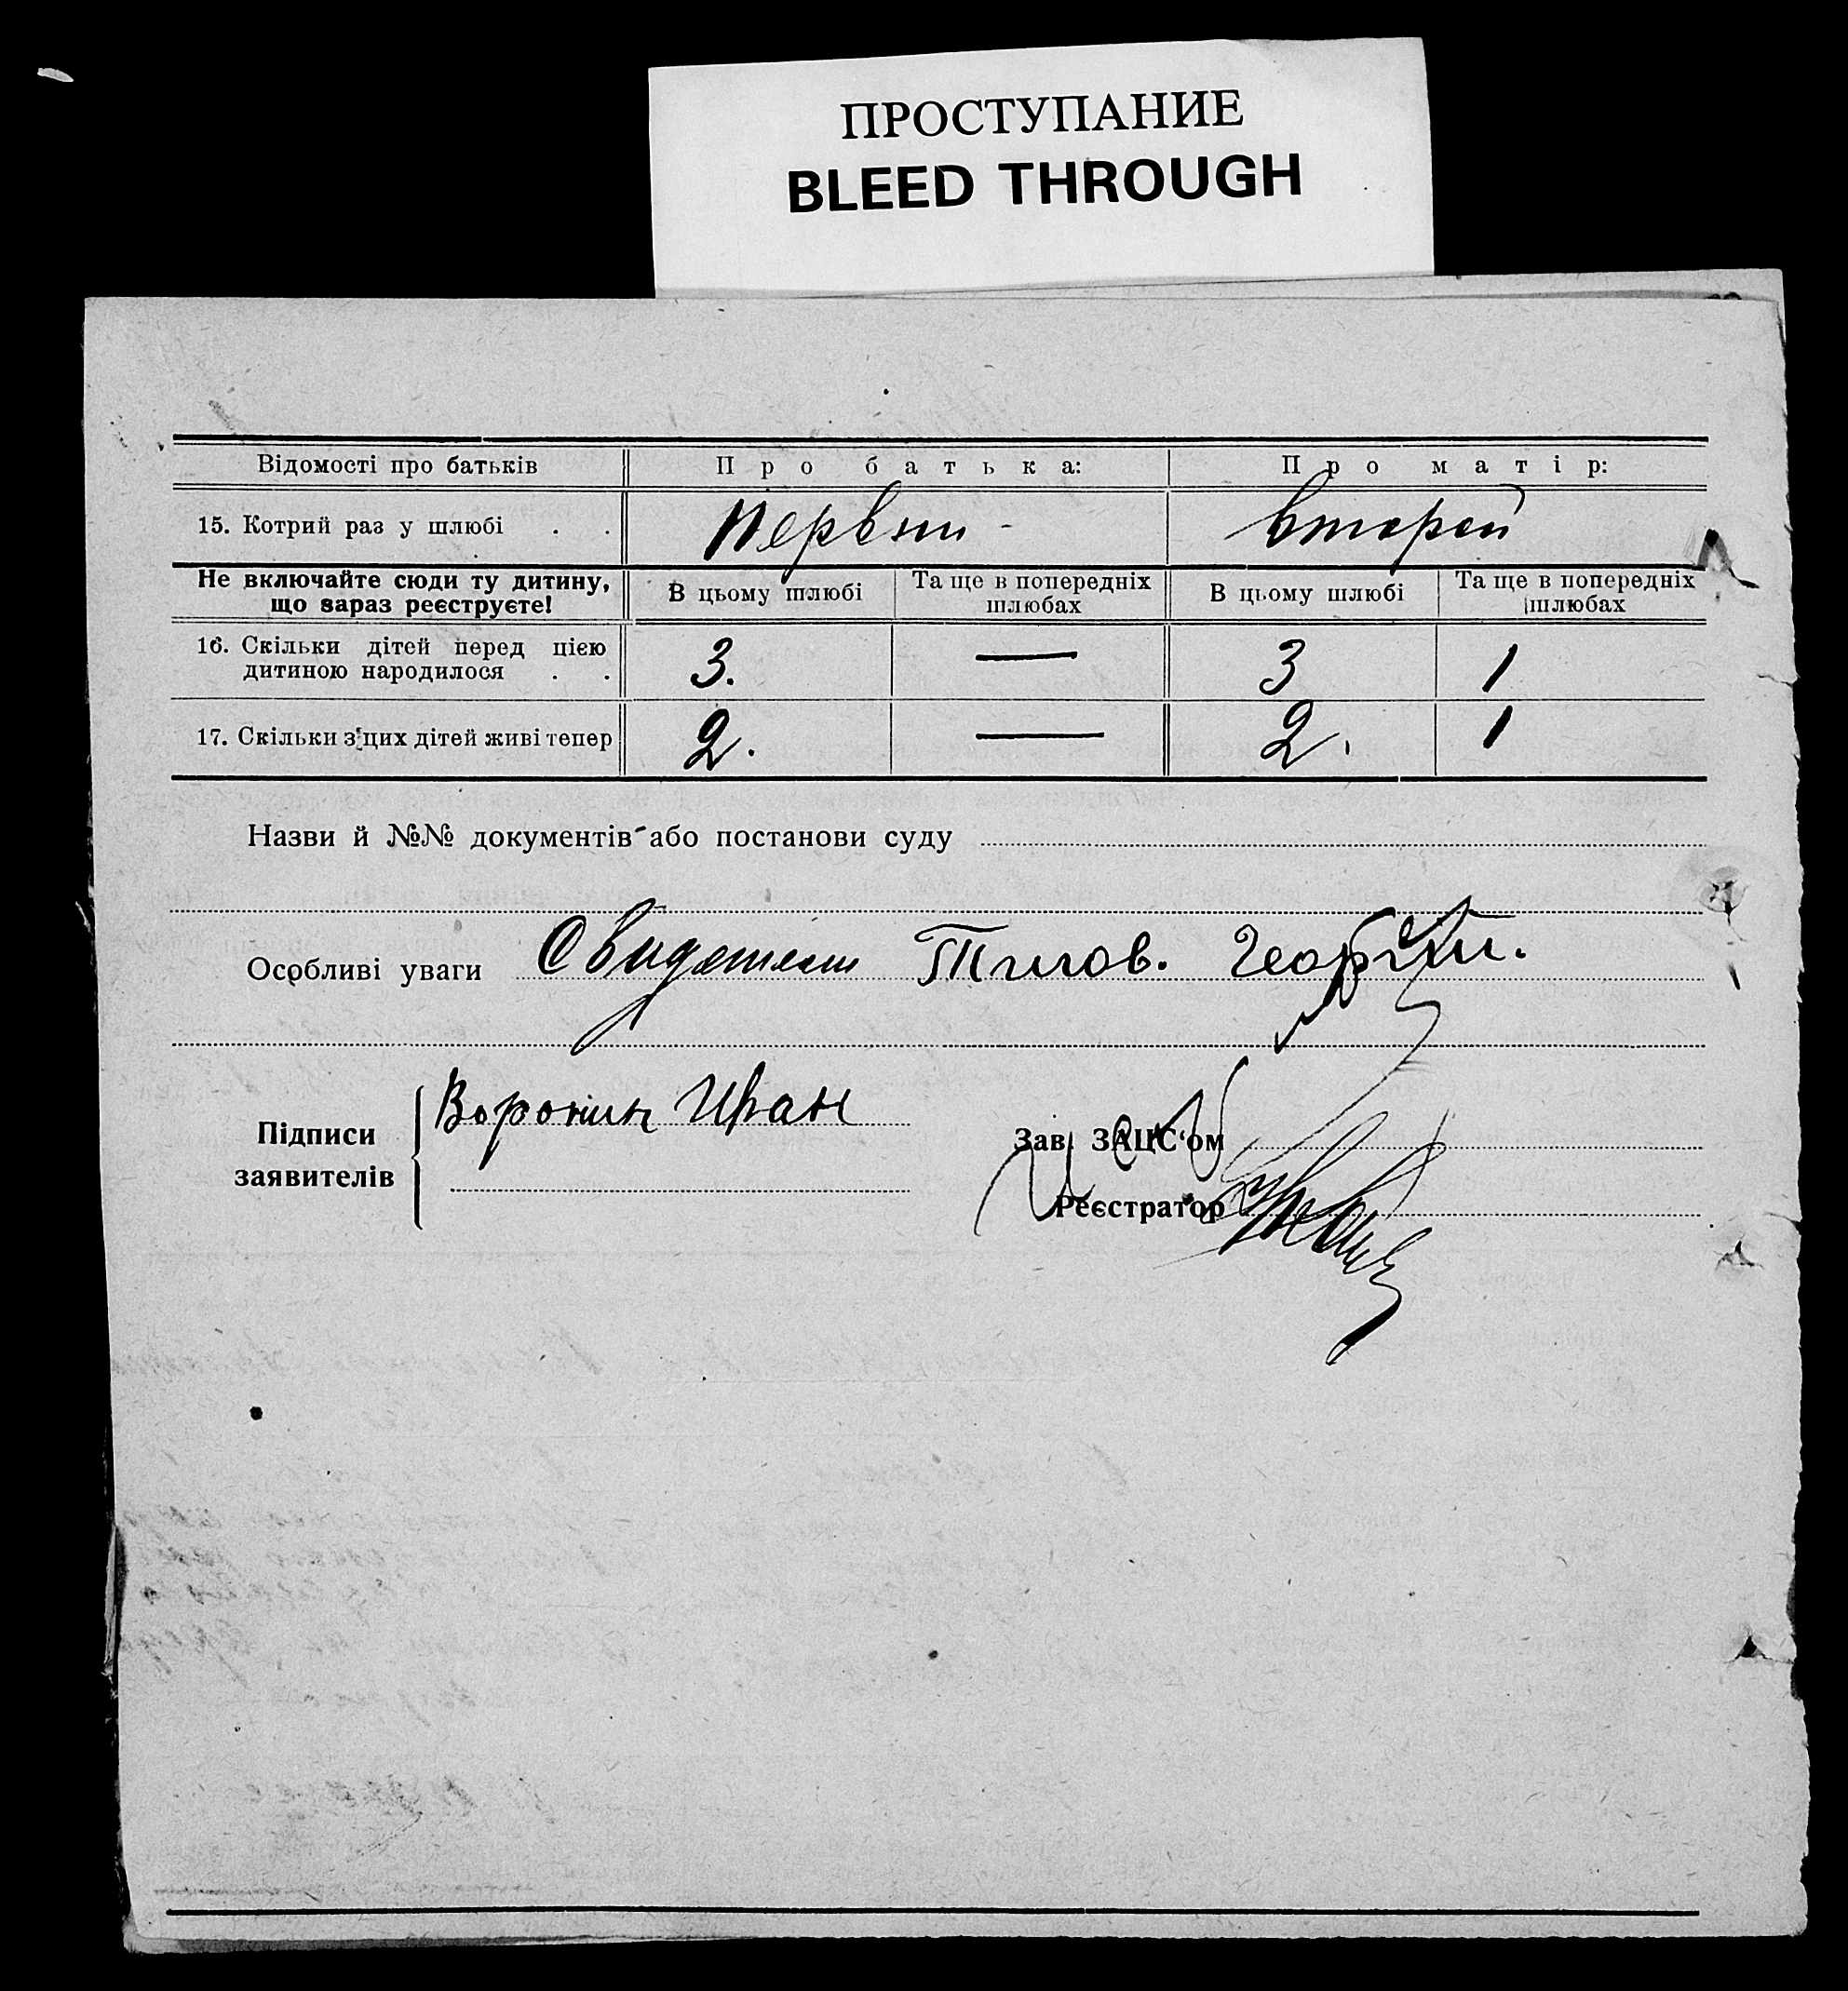 ПРОСТУПАНИЕ
BLEED THROUGH
Відомості про батьків Про батька: Про матір:
15. Котрий раз у шлюбі . . Первый - второй
Не включайте сюди ту дитину, що зараз реєструєте! В цьому шлюбі Та ще в попередніх шлюбах В цьому шлюбі Та ще в попередніх шлюбах
16. Скільки дітей перед цією дитиною народилося . . 3. — 3 1
17. Скільки з цих дітей живі тепер 2. — 2. 1
Назви й №№ документів або постанови суду
Особливі уваги Свидетели
Підписи заявителів Воронин Иван
Зав. ЗАЦС‘ом
Реєстратор